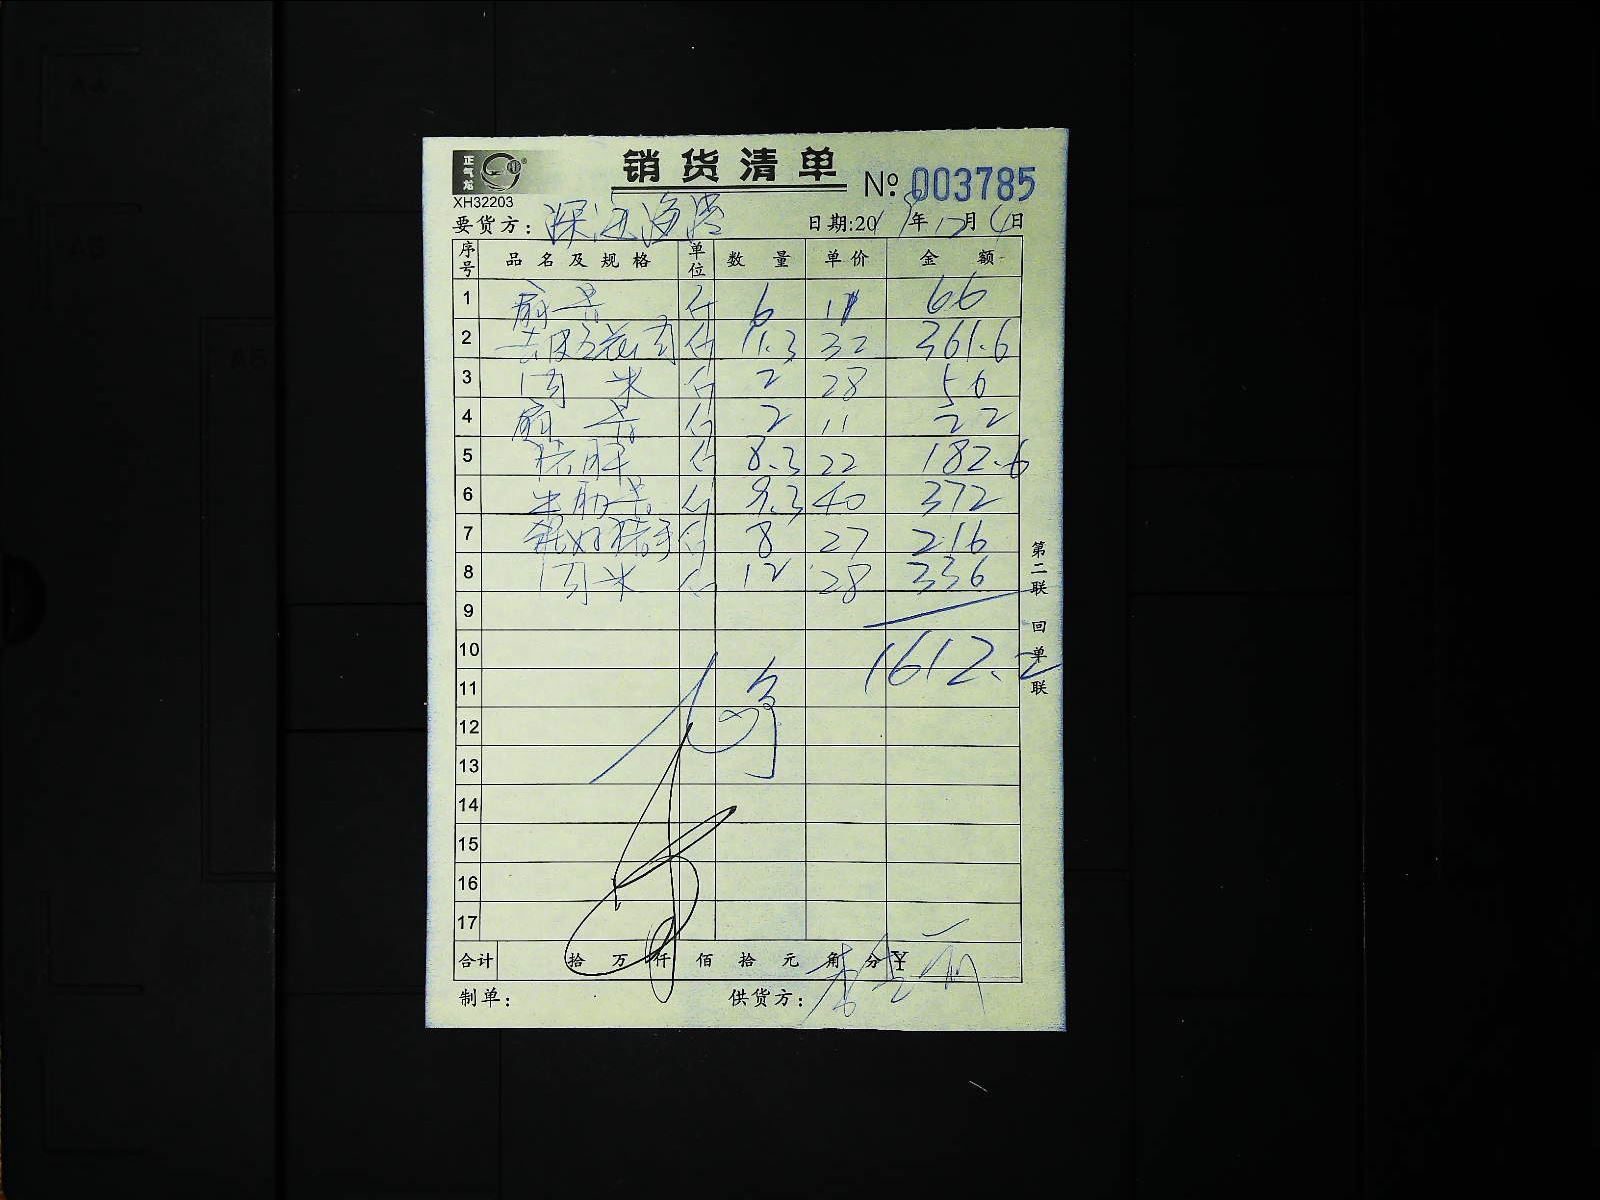 正气龙
销货清单
№: 003785
XH32203
要货方：深
日期:2019年12月4日
序号 品名及规格 单位 数量 单价 金额
1 扇骨 斤 6 11 66
2 去皮五花肉 斤 11.3 32 361.6
3 肉米 斤 2 28 56
4 扇骨 斤 2 11 22
5 猪肝 斤 8.3 22 182.6
6 斤 9.3 40 372
7 猪手 斤 8 27 216
8 肉米 斤 12 28 336
9
10 1612.2
11
12
13
14
15
16
17
合计 拾 万 仟 佰 拾 元 角 分 ¥
制单： 供货方：李
第二联 回单联